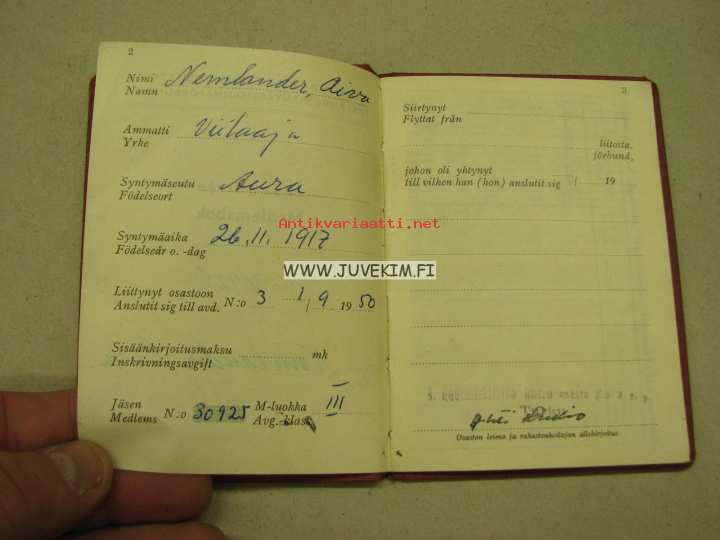 2
Nimi Nemlander, Aira
Namn
Ammatti Viilaaja
Yrke
Syntymäseutu Aura
Födelseort
Syntymäaika 26.11.1917
Födelseår o. -dag
Liittynyt osastoon N:o 3 1/9 1950
Anslutit sig till avd.
Sisäänkirjoitusmaksu mk
Inskrivningsavgift
Jäsen N:o 30925 M-luokka III
Medlems Avg.-klass
3
Siirtynyt
Flyttat från
liitosta,
förbund,
johon oli yhtynyt
till vilken han (hon) anslutit sig / 19
Osaston leima ja rahastonhoitajan allekirjoitus
Antikvariaatti.net
WWW.JUVEKIM.FI